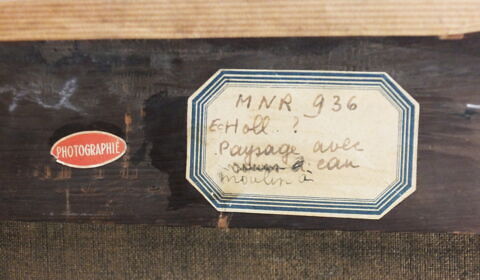 MNR 936
E. Holl. ?
PHOTOGRAPHIÉ
Paysage avec
à eau
moulin à